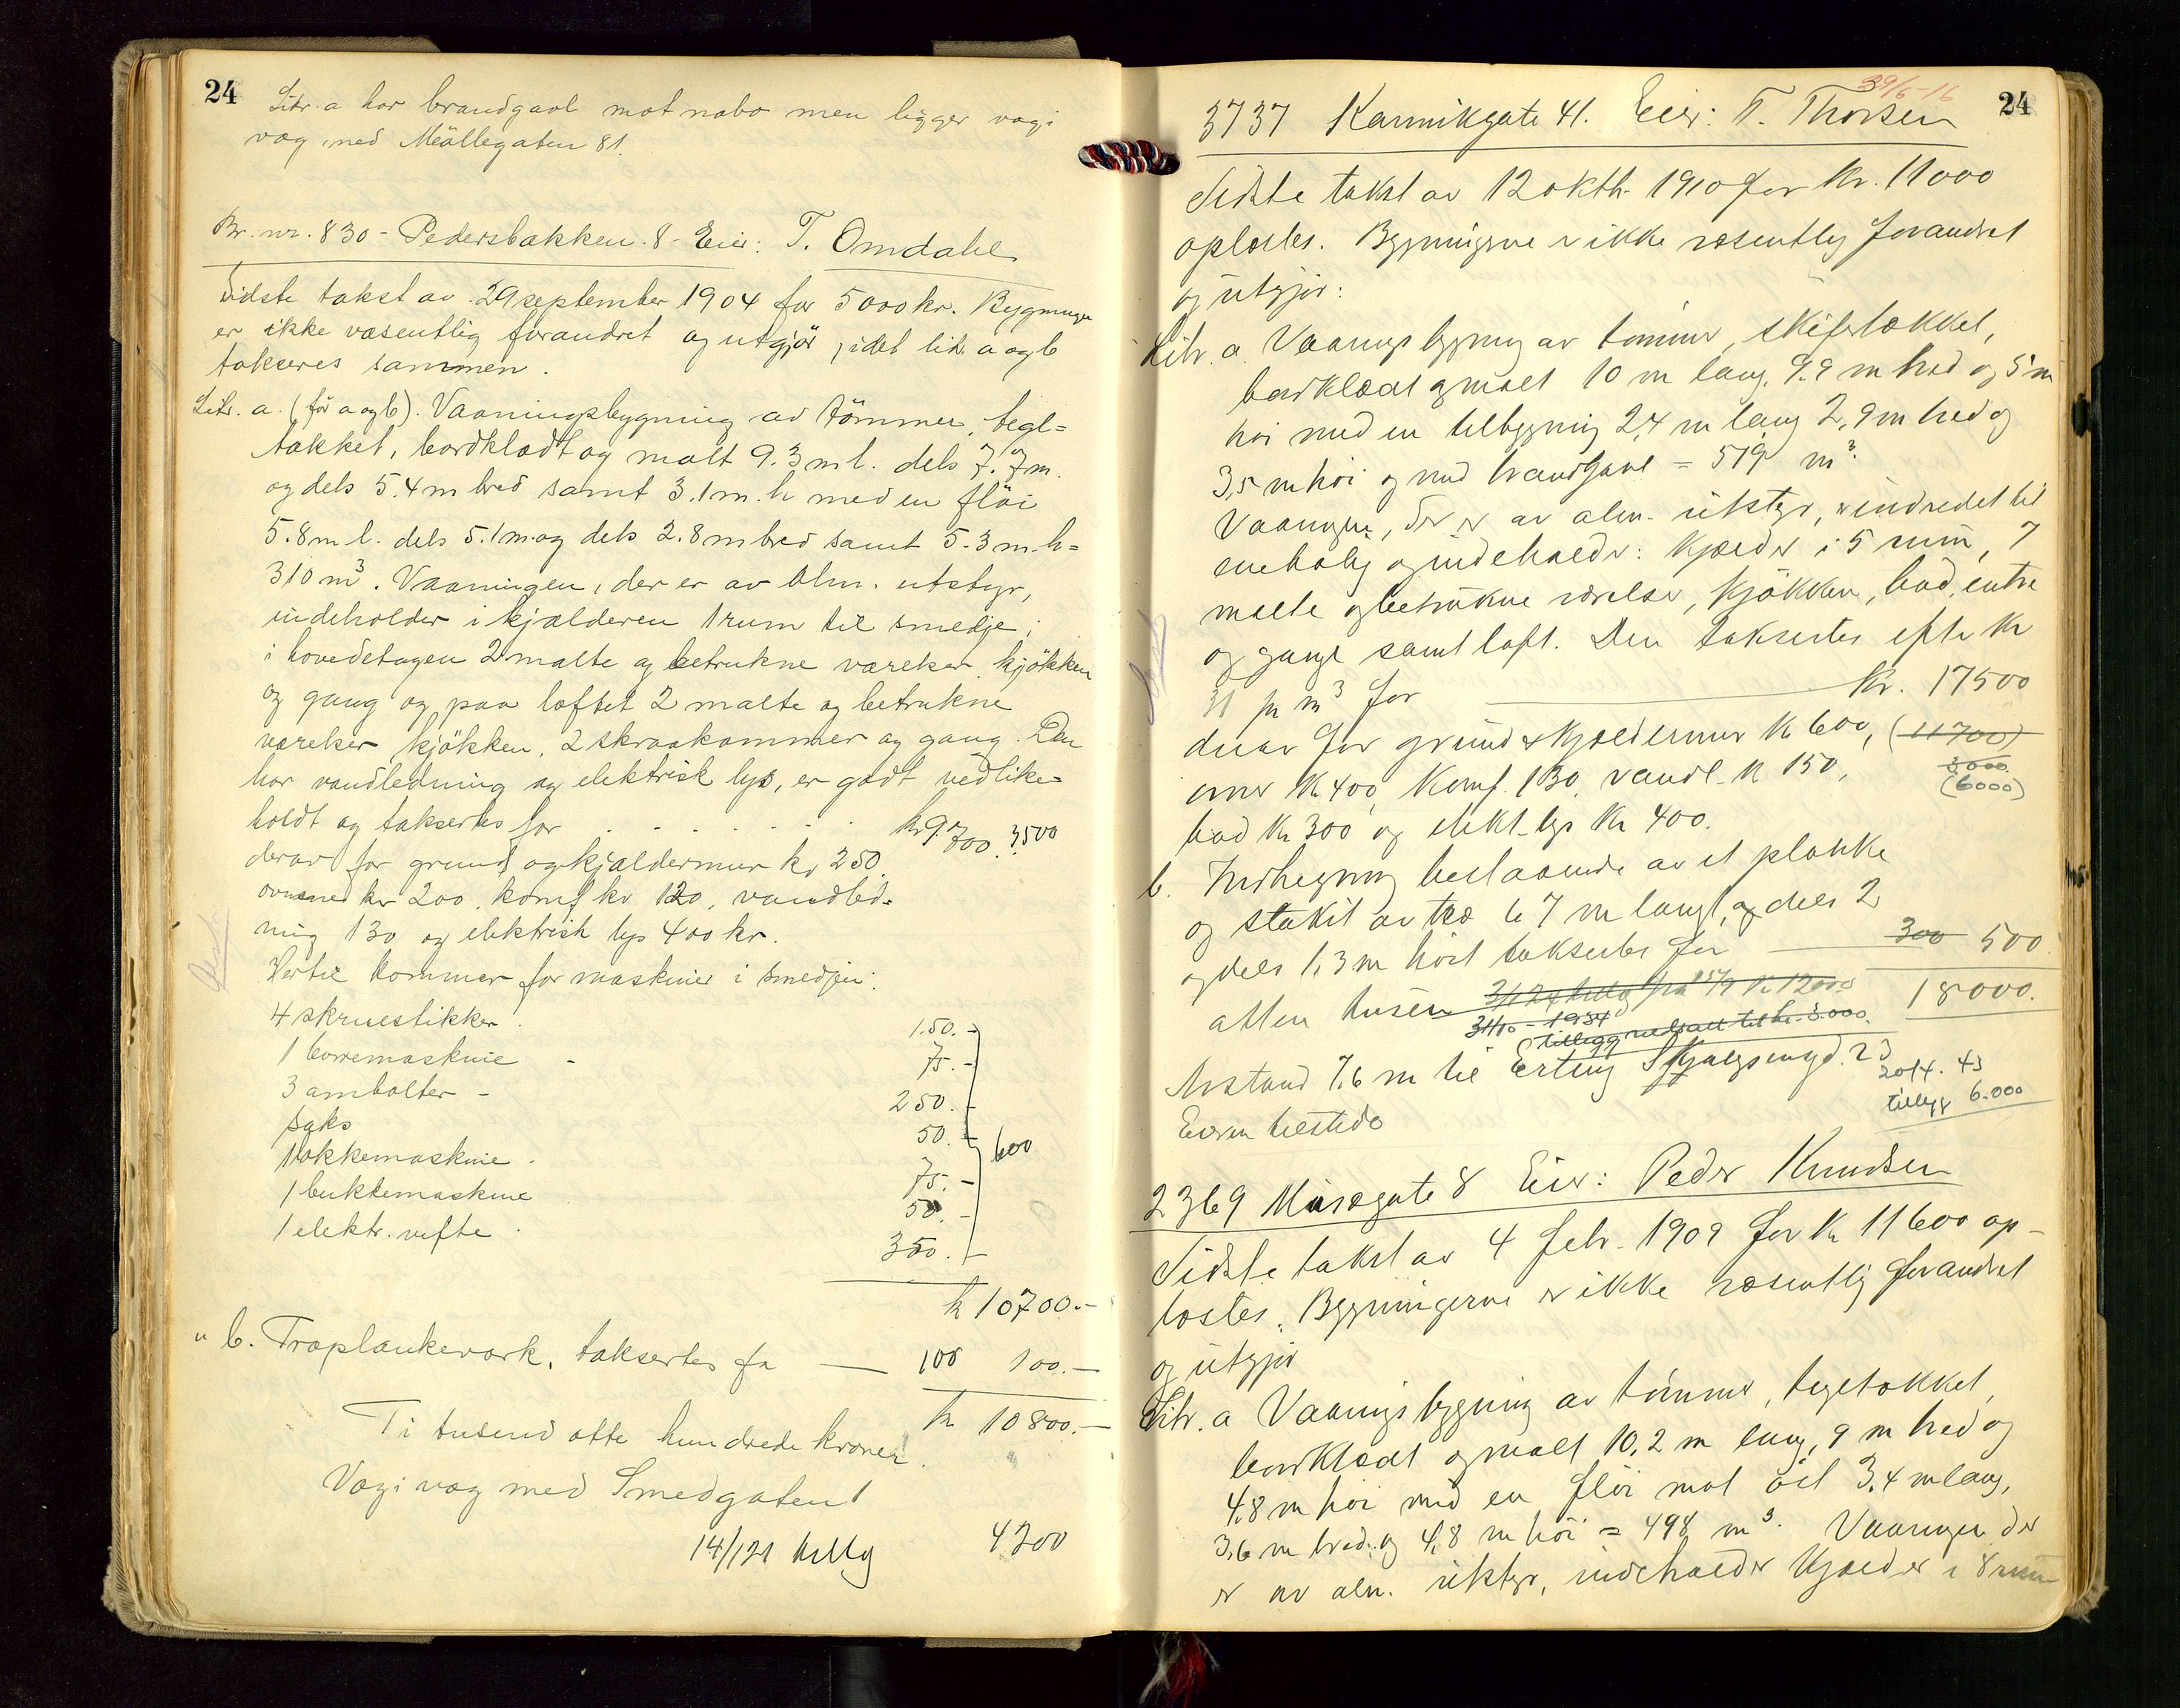 24
Litr. a har brandgavl mot nabo men ligger væg i
væg med Møllegaten 81.
Br. nr. 830 - Pedersbakken 8 - Eier: T. Omdahl
Sidste takst av 29 september 1904 for 5000 kr. Bygningen
er ikke væsentlig forandret og utgjör, idet litr. a og b
takseres sammen.
Litr. a. (för a og b). Vaaningsbygning av tömmer, tegl=
tækket, bordklædt og malt 9.3 m l. dels 7.7 m.
og dels 5.4 m bred samt 3.1 m. h med en flöi
5.8 m l. dels 5.1 m og dels 2.8 m bred samt 5.3 m. h =
310 m³. Vaaningen, der er av alm. utstyr,
indeholder i kjælderen 1 rum til smedje;
i hovedetagen 2 malte og betrukne værelser, kjökken
og gang og paa loftet 2 malte og betrukne
værelser, kjökken, 2 skraakammer og gang. Den
har vandledning og elektrisk lys, er godt vedlike=
holdt og taksertes for . . . . . . kr 9700. 3500
derav for grund og kjældermur kr 250.
ovner kr 200. komf kr 120, vandled=
ning 130 og elektrisk lys 400 kr.
Hertil kommer for maskiner i smedjen:
4 skruestikker . 150. -
1 borremaskine - 75. -
3 ambolter - 250. -
saks 50. -
600
1 lokkemaskine . 75. -
1 bukkemaskine 50. -
1 elektr. vifte . 350. -
kr 10700. -
" b. Træplankeværk, taksertes for — 100 100. —
kr 10800. —
Ti tusend otte hundrede kroner.
Væg i væg med Smedgaten 1
14/121 tillæg 4200
29/6-16
24
3737 Kannikgate 41. Eier: T. Thorsen
Sidste takst av 12 oktb. 1910 for kr. 11000
oplæstes. Bygningerne er ikke væsentlig forandret
og utgjör:
Litr. a. Vaaningsbygning av tömmer, skifertækket,
bordklædt og malt 10 m lang, 9.9 m bred og 5 m
höi med en tilbygning 2,4 m lang 2,9 m bred og
3,5 m höi og med brandgavl = 519 m³.
Vaaningen, der er av alm. utstyr, er indredet til
enebolig og indeholder: Kjælder i 5 rum, 7
malte og betrukne værelser, kjökken, bad, entre
og gange samt loft. Den taksertes efter kr
31 pr m³ for kr. 17500
derav for grund & kjældermur kr 600, (11700)
ovner kr 400, komf. 130, vandl. kr 150, 3000
(6000)
bad kr 300 og elekt. lys kr 400.
b. Indhegning bestaaende av et planke
og stakit av træ 67 m langt, og dels 2
og dels 1,3 m höit taksertes for 300 500
atten tusen 18000.
31/10 - 1934
tillegg nedsatt til kr. 3.000
Avstand 7,6 m til Erling Skjalgsongd. 23
20/4. 43
tillegg 6.000
Eieren tilstede
2369 Musægate 8 Eier: Peder Knudsen
Sidste takst av 4 febr. 1909 for kr 11600 op-
læstes. Bygningerne er ikke væsentlig forandret
og utgjör
Litr. a Vaaningsbygning av tömmer, tegltækket,
bordklædt og malt 10,2 m lang, 9 m bred og
4,8 m höi med en flöi mot öst 3,4 m lang,
3,6 m bred og 4,8 m höi = 498 m³. Vaaningen der
er av alm. utstyr, indeholder kjælder i 8 rum